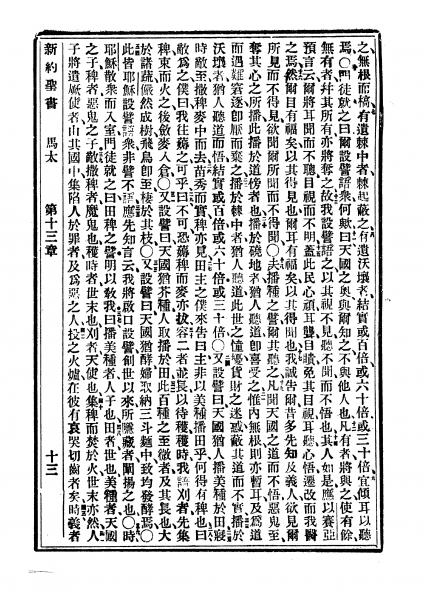 之無根而槁有遺棘中者棘起蔽之有遺沃壤者結實或百倍或六十倍或三十倍宜傾耳以聽
焉〇門徒就之曰爾設譬語衆何歟曰天國之奧與爾知之不與他人也凡有者將與之使有餘
無有者幷其所有亦將奪之故我設譬語之以其視不見聽不聞而不悟也其人如是應以賽亞
預言云爾將耳聞而不聰目視而不明蓋此民心頑耳聾目瞶免其目視耳聽心悟遷改而我醫
之焉然爾目有福矣以其得見也爾耳有福矣以其得聞也我誠告爾昔多先知及義人欲見爾
所見而不得見欲聞爾所聞而不得聞〇夫播種之譬爾其聽之凡聞天國之道而不悟惡鬼至
奪其心之所播此播於道傍者也播於磽地者猶人聽道卽喜受之惟內無根則亦暫耳及爲道
而遇難窘逐卽厭而棄之播於棘中者猶人聽道此世之憧擾貨財之迷惑蔽其道而不實播於
沃壤者猶人聽道而悟結實或百倍或六十倍或三十倍〇又設譬曰天國猶人播美種於田寢
時敵至撒稗麥中而去苗秀而實稗亦見田主之僕來告曰主非以美種播田乎何得有稗也曰
敵爲之僕曰我往薅之可乎曰不可恐薅稗而麥亦拔容二者並長以待穫穫時我語刈者先集
稗束而火之後斂麥入倉〇又設譬曰天國猶芥種人取播於田此百種之至微者及其長也大
於諸蔬儼然成樹飛鳥卽至棲於其枝〇又設譬曰天國猶酵婦取納三斗麵中致均發酵焉〇
此皆耶穌設譬語衆非譬不語應先知言云我將啟口設譬創世以來所隱藏者闡揚之也〇時
耶穌散衆而入室門徒就之曰田稗之譬明以敎我曰播美種者人子也田者世也美種者天國
之子稗者惡鬼之子敵撒稗者魔鬼也穫時者世末也刈者天使也集稗而焚於火世末亦然人
子將遣厥使者由其國中集陷人於罪者及爲惡之人投之火爐在彼有哀哭切齒者矣時義者
新約聖書 馬太 第十三章 十三